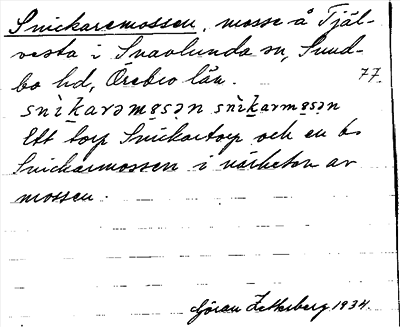 Snickaremossen, mosse å Tjäl-
vesta i Svavlunda sn, Sund-
bo hd, Örebro län. 77.
snìkarəmo̱sən snìkarmo̱sən
Ett torp Snickartorp och en b.
Snickarmossen i närheten av
mossen.
Göran Zetterberg 1934.